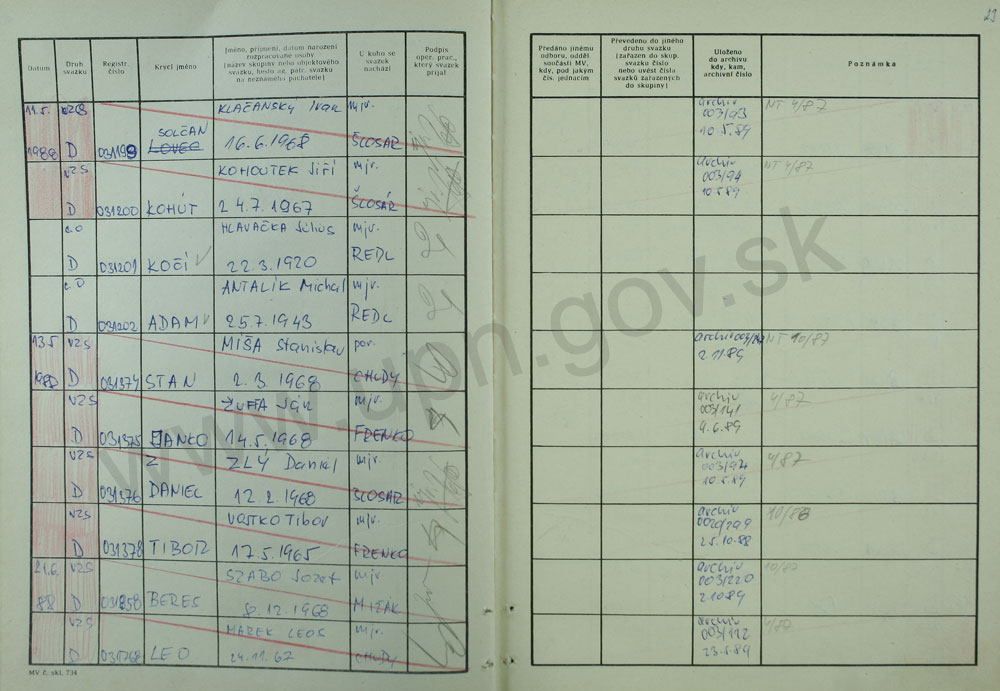 23
Datum
Druh svazku
Registr. číslo
Krycí jméno
Jméno, příjmení, datum narození
rozpracované osoby
(název skupiny nebo objektového
svazku, heslo ag. pátr. svazku
na neznámého pachatele)
U koho se
svazek
nachází
Podpis
oper. prac.,
který svazek
přijal
Předáno jinému
odboru, odděl.
součásti MV,
kdy, pod jakým
čís. jednacím
Převedeno do jiného
druhu svazku
(zařazen do skup.
číslo
nebo uvést čísla
svazků zařazených
do skupiny)
Uloženo
do archivu
kdy, kam,
archivní číslo
Poznámka
11.5. KLAČANSKY Ivan mjr. archiv NT 4/87
SOLČAN 003/93
1988 D 031199 16.6.1968 ŠLOSÁR 10.5.89
VZS KOHOUTEK Jiří mjr. archiv NT 4/87
003/94
D 031200 KOHÚT 24.7.1967 ŠLOSÁR 10.5.89
ČO HLAVAČKA Július mjr.
D 031201 KOČÍ 22.3.1920 REDL
ČO ANTALÍK Michal mjr.
D 031202 ADAM 25.7.1943 REDL
13.5 VZS MIŠA Stanislav por. archiv NT 10/87
D 031374 STAN 2.3.1968 CHUDY 2.11.89
VZS Ján mjr. archiv 4/87
003/141
D 031375 JANKO 14.5.1968 FRENKO 9.6.89
VZS ZLÝ Daniel mjr. archiv 4/87
003/92
D 031376 DANIEL 12.2.1968 ŠLOSÁR 10.5.89
VZS VOJTKO Tibor mjr. archiv 10/86
D 031378 TIBOR 17.5.1965 FRENKO 25.10.88
21.6. VZS SZABO Jozef mjr archiv 10/87
003/220
88 D BEREŠ 8.12.1968 MIZÁK 2.10.89
VZS MAREK LEOS mjr. archiv 4/87
003/112
D LEO 24.11.67 CHUDY 23.5.89
MV č. skl. 734
www.upn.gov.sk